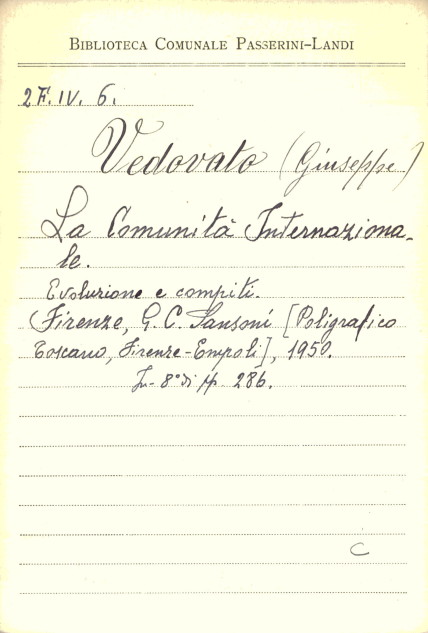 BIBLIOTECA COMUNALE PASSERINI-LANDI
2F. IV. 6.
Vedovato (Giuseppe)
La Comunità Internaziona-
le.
Evoluzione e compiti.
(Firenze, G. C. Sansoni [Poligrafico
Toscano, Firenze-Empoli], 1950.
In-8° di pp. 286.
C